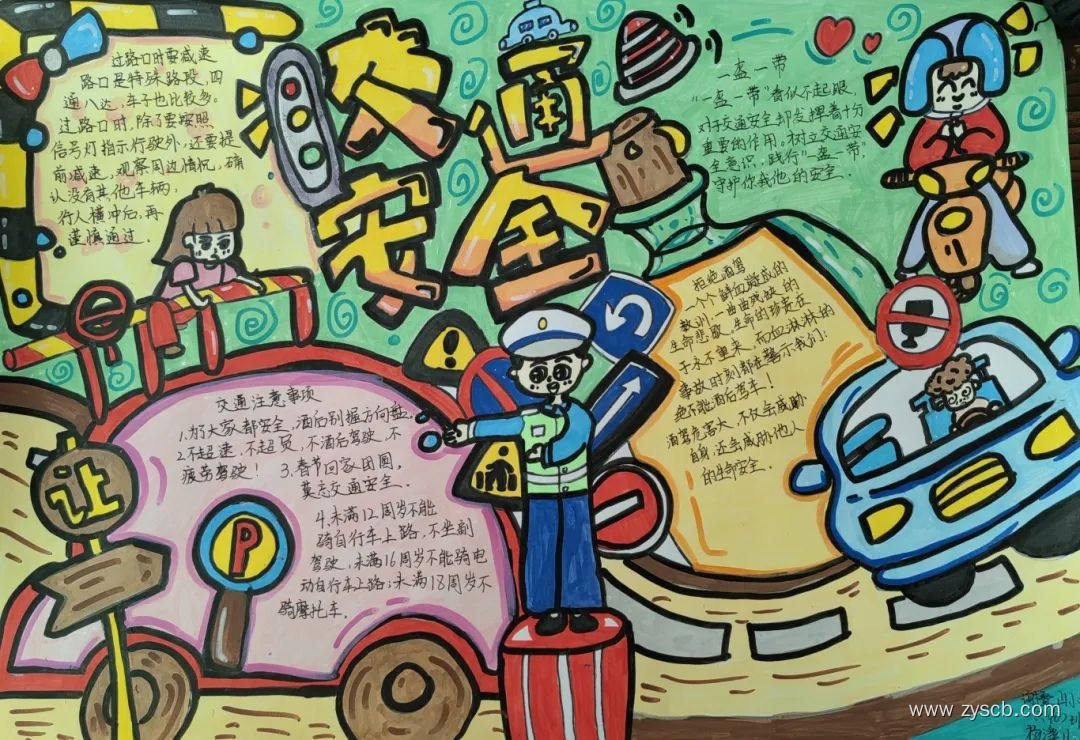 交通
安全
过路口时要减速
路口是特殊路段,四
通八达,车子也比较多。
过路口时,除了要按照
信号灯指示行驶外,还要提
前减速,观察周边情况,确
认没有其他车辆,
行人横冲后,再
谨慎通过.
一盔一带
"一盔一带"看似不起眼,
对于交通安全却发挥着十分
重要的作用。树立交通安
全意识,践行"一盔一带"
守护你我他的安全.
拒绝酒驾
一个个鲜血凝成的
教训,一曲曲残缺的
生命悲歌,生命的珍贵在
于永不重来,而血淋淋的
事故时刻都在警示我们:
绝不能酒后驾车!
酒驾危害大,不仅会威胁
自身,还会威胁他人
的生命安全.
交通注意事项
1.为了大家都安全,酒后别握方向盘.
2.不超速,不超员,不酒后驾驶,不
疲劳驾驶! 3.春节回家团圆,
莫忘交通安全.
4.未满12周岁不能
骑自行车上路,不坐副
驾驶,未满16周岁不能骑电
动自行车上路;未满18周岁不
骑摩托车.
让
P
www.zyscb.com